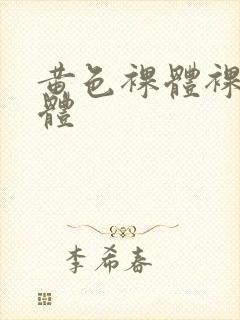 黃色裸體裸
體
李希春